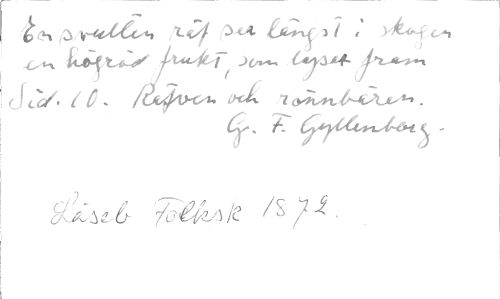 En svulten räf ser längst i skogen
en högröd frukt, som lyset fram
Sid. 10. Räfven och rönnbären.
G. F. Gyllenborg.
Läseb Folksk 1872.